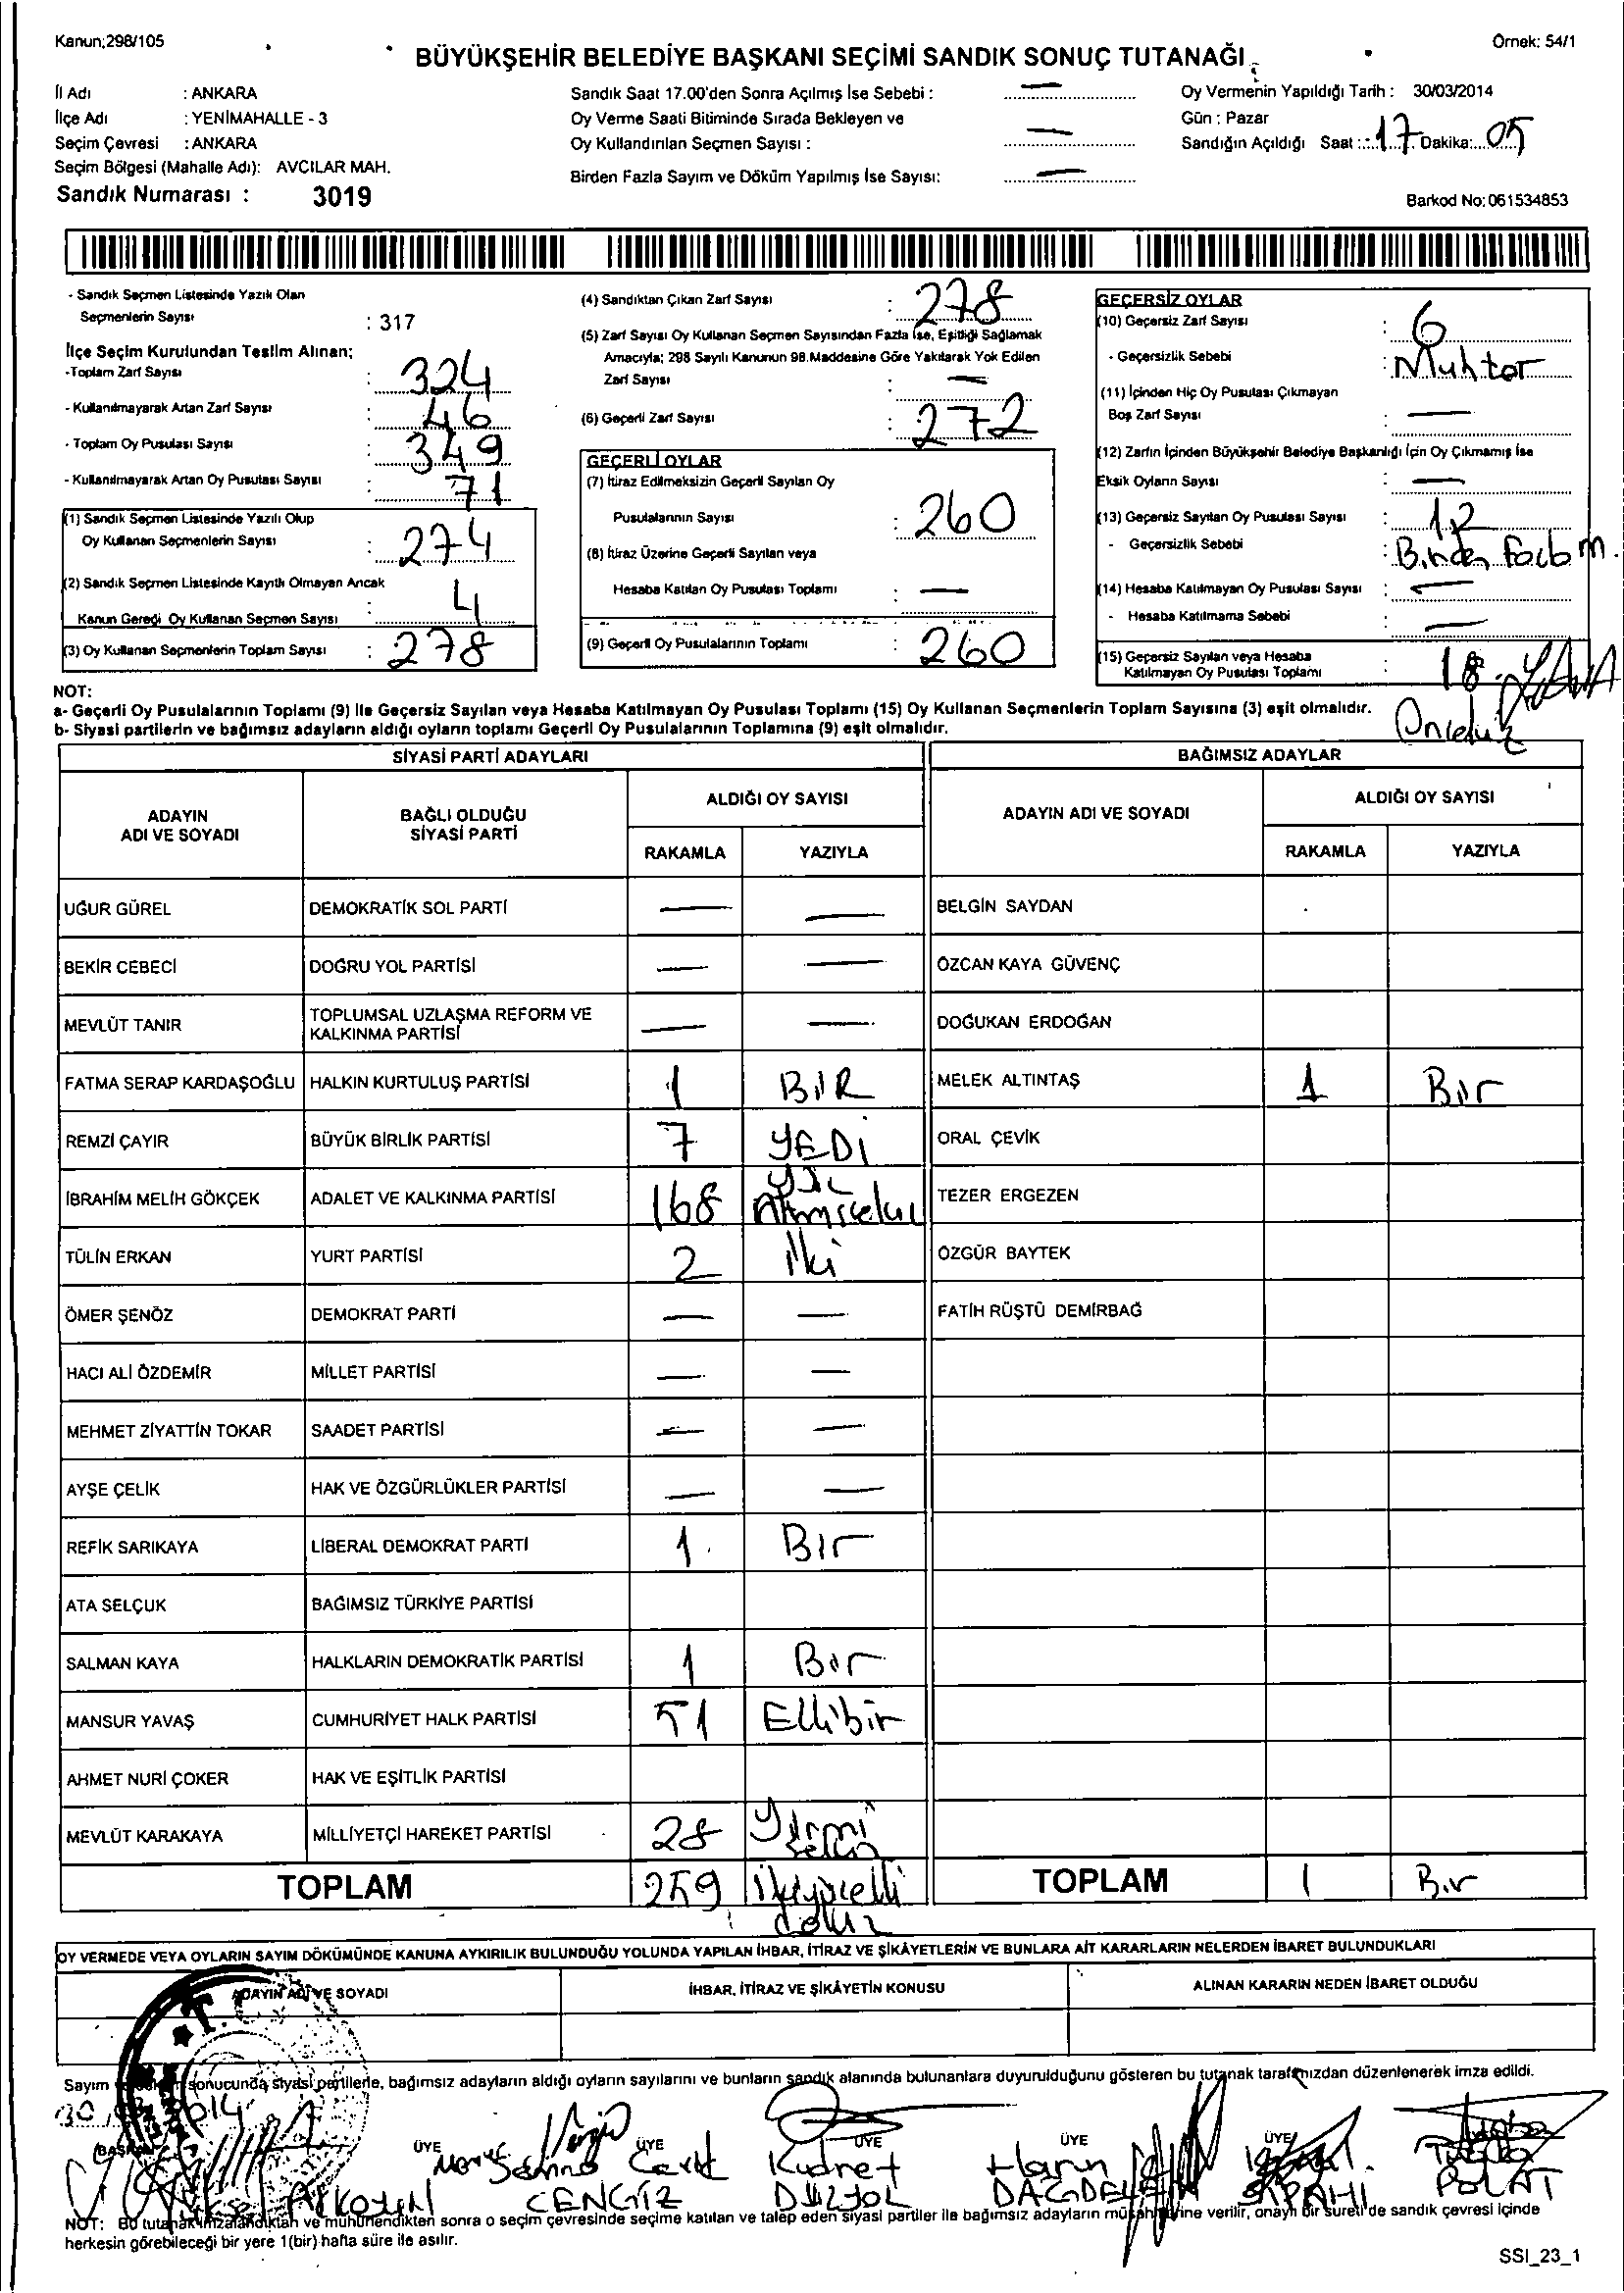 Kanun;298/105
Örnek: 54/1
BÜYÜKŞEHİR BELEDİYE BAŞKANI SEÇİMİ SANDIK SONUÇ TUTANAĞI
İl Adı : ANKARA
İlçe Adı : YENİMAHALLE - 3
Seçim Çevresi : ANKARA
Seçim Bölgesi (Mahalle Adı): AVCILAR MAH.
Sandık Numarası : 3019
Sandık Saat 17.00'den Sonra Açılmış İse Sebebi : —
Oy Verme Saati Bitiminde Sırada Bekleyen ve
Oy Kullandırılan Seçmen Sayısı : —
Birden Fazla Sayım ve Döküm Yapılmış İse Sayısı: —
Oy Vermenin Yapıldığı Tarih : 30/03/2014
Gün : Pazar
Sandığın Açıldığı Saat : 17 Dakika: 05
Barkod No: 061534853
- Sandık Seçmen Listesinde Yazılı Olan
Seçmenlerin Sayısı : 317
İlçe Seçim Kurulundan Teslim Alınan;
-Toplam Zarf Sayısı : 324
- Kullanılmayarak Artan Zarf Sayısı : 46
- Toplam Oy Pusulası Sayısı : 349
- Kullanılmayarak Artan Oy Pusulası Sayısı : 71
(1) Sandık Seçmen Listesinde Yazılı Olup
Oy Kullanan Seçmenlerin Sayısı : 274
(2) Sandık Seçmen Listesinde Kayıtlı Olmayan Ancak
Kanun Gereği Oy Kullanan Seçmen Sayısı : 4
(3) Oy Kullanan Seçmenlerin Toplam Sayısı : 278
(4) Sandıktan Çıkan Zarf Sayısı : 278
(5) Zarf Sayısı Oy Kullanan Seçmen Sayısından Fazla İse, Eşitliği Sağlamak
Amacıyla; 298 Sayılı Kanunun 98.Maddesine Göre Yakılarak Yok Edilen
Zarf Sayısı : —
(6) Geçerli Zarf Sayısı : 272
GEÇERLİ OYLAR
(7) İtiraz Edilmeksizin Geçerli Sayılan Oy
Pusulalarının Sayısı : 260
(8) İtiraz Üzerine Geçerli Sayılan veya
Hesaba Katılan Oy Pusulası Toplamı : —
(9) Geçerli Oy Pusulalarının Toplamı : 260
GEÇERSİZ OYLAR
(10) Geçersiz Zarf Sayısı : 6
- Geçersizlik Sebebi : Muhtar
(11) İçinden Hiç Oy Pusulası Çıkmayan
Boş Zarf Sayısı : —
(12) Zarfın İçinden Büyükşehir Belediye Başkanlığı İçin Oy Çıkmamış İse
Eksik Oyların Sayısı : —
(13) Geçersiz Sayılan Oy Pusulası Sayısı : 12
- Geçersizlik Sebebi : Birden Fazla m.
(14) Hesaba Katılmayan Oy Pusulası Sayısı : —
- Hesaba Katılmama Sebebi : —
(15) Geçersiz Sayılan veya Hesaba
Katılmayan Oy Pusulası Toplamı : 18
NOT:
a- Geçerli Oy Pusulalarının Toplamı (9) ile Geçersiz Sayılan veya Hesaba Katılmayan Oy Pusulası Toplamı (15) Oy Kullanan Seçmenlerin Toplam Sayısına (3) eşit olmalıdır.
b- Siyasi partilerin ve bağımsız adayların aldığı oyların toplamı Geçerli Oy Pusulalarının Toplamına (9) eşit olmalıdır.
SİYASİ PARTİ ADAYLARI
BAĞIMSIZ ADAYLAR
ADAYIN ADI VE SOYADI
BAĞLI OLDUĞU SİYASİ PARTİ
ALDIĞI OY SAYISI
RAKAMLA YAZIYLA
ADAYIN ADI VE SOYADI
ALDIĞI OY SAYISI
RAKAMLA YAZIYLA
UĞUR GÜREL DEMOKRATİK SOL PARTİ — — BELGİN SAYDAN
BEKİR CEBECİ DOĞRU YOL PARTİSİ — — ÖZCAN KAYA GÜVENÇ
MEVLÜT TANIR TOPLUMSAL UZLAŞMA REFORM VE KALKINMA PARTİSİ — — DOĞUKAN ERDOĞAN
FATMA SERAP KARDAŞOĞLU HALKIN KURTULUŞ PARTİSİ 1 BİR MELEK ALTINTAŞ 1 Bir
REMZİ ÇAYIR BÜYÜK BİRLİK PARTİSİ 7 YEDİ ORAL ÇEVİK
İBRAHİM MELİH GÖKÇEK ADALET VE KALKINMA PARTİSİ 168 TEZER ERGEZEN
TÜLİN ERKAN YURT PARTİSİ 2 İki ÖZGÜR BAYTEK
ÖMER ŞENÖZ DEMOKRAT PARTİ — — FATİH RÜŞTÜ DEMİRBAĞ
HACI ALİ ÖZDEMİR MİLLET PARTİSİ — —
MEHMET ZİYATTİN TOKAR SAADET PARTİSİ — —
AYŞE ÇELİK HAK VE ÖZGÜRLÜKLER PARTİSİ — —
REFİK SARIKAYA LİBERAL DEMOKRAT PARTİ 1 Bir
ATA SELÇUK BAĞIMSIZ TÜRKİYE PARTİSİ
SALMAN KAYA HALKLARIN DEMOKRATİK PARTİSİ 1 Bir
MANSUR YAVAŞ CUMHURİYET HALK PARTİSİ 51 Ellibir
AHMET NURİ ÇOKER HAK VE EŞİTLİK PARTİSİ
MEVLÜT KARAKAYA MİLLİYETÇİ HAREKET PARTİSİ 28 Yirmi sekiz
TOPLAM 259 İkiyüzelli dokuz TOPLAM 1 Bir
OY VERMEDE VEYA OYLARIN SAYIM DÖKÜMÜNDE KANUNA AYKIRILIK BULUNDUĞU YOLUNDA YAPILAN İHBAR, İTİRAZ VE ŞİKÂYETLERİN VE BUNLARA AİT KARARLARIN NELERDEN İBARET BULUNDUKLARI
ADAYIN ADI VE SOYADI İHBAR, İTİRAZ VE ŞİKÂYETİN KONUSU ALINAN KARARIN NEDEN İBARET OLDUĞU
T.C.
Sayım sonucunda siyasi partilerle, bağımsız adayların aldığı oyların sayılarını ve bunların sandık alanında bulunanlara duyurulduğunu gösteren bu tutanak tarafımızdan düzenlenerek imza edildi.
BAŞKAN ÜYE ÜYE ÜYE ÜYE ÜYE
Kudret DÜZYOL
CENGİZ
Harun DAĞDELEN
SİPAHİ
Tuğba POLAT
NOT: Bu tutanak imzalandıktan ve mühürlendikten sonra o seçim çevresinde seçime katılan ve talep eden siyasi partiler ile bağımsız adayların müşahitlerine verilir, onaylı bir sureti de sandık çevresi içinde
herkesin görebileceği bir yere 1(bir) hafta süre ile asılır.
SSI_23_1